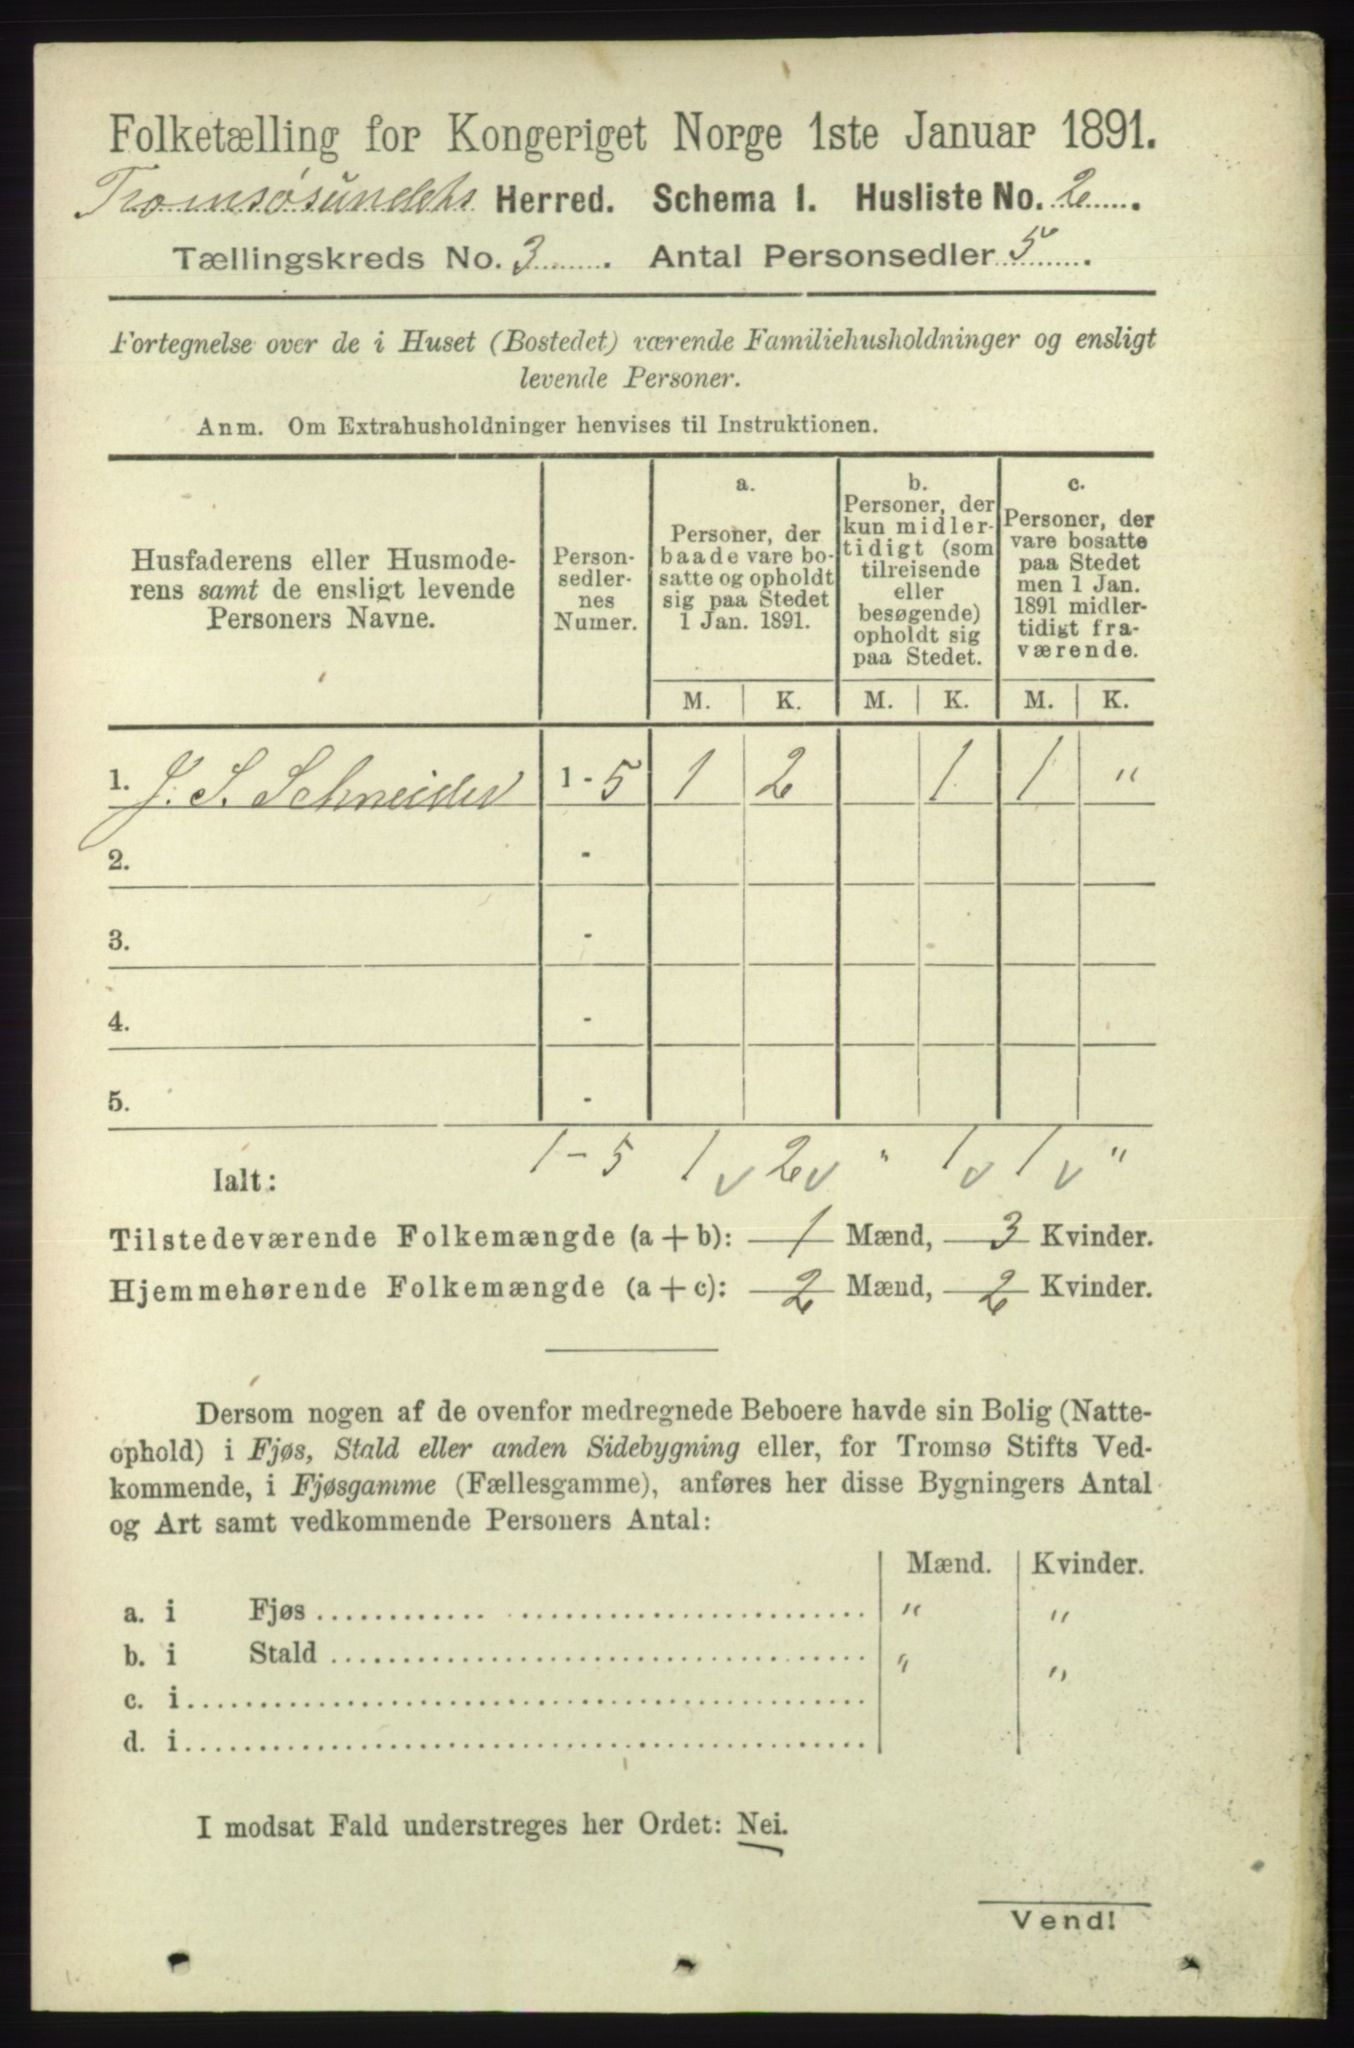 Folketælling for Kongeriget Norge 1ste Januar 1891.
Tromsøsundets Herred. Schema I. Husliste No. 2.
Tællingskreds No. 3. Antal Personsedler 5.
Fortegnelse over de i Huset (Bostedet) værende Familiehusholdninger og ensligt
levende Personer.
Anm. Om Extrahusholdninger henvises til Instruktionen.
Husfaderens eller Husmode-
rens samt de ensligt levende
Personers Navne.
Person-
sedler-
nes
Numer.
a.
Personer, der
baade vare bo-
satte og opholdt
sig paa Stedet
1 Jan. 1891.
b.
Personer, der
kun midler-
tidigt (som
tilreisende
eller
besøgende)
opholdt sig
paa Stedet.
c.
Personer, der
vare bosatte
paa Stedet
men 1 Jan.
1891 midler-
tidigt fra-
værende.
M. K. M. K. M. K.
1. J. S. Schneider 1 - 5 1 2 1 1 "
2. -
3. -
4. -
5. -
Ialt: 1 - 5 1 v 2 v " 1 v 1 v "
Tilstedeværende Folkemængde (a + b): 1 Mænd, 3 Kvinder.
Hjemmehørende Folkemængde (a + c): 2 Mænd, 2 Kvinder.
Dersom nogen af de ovenfor medregnede Beboere havde sin Bolig (Natte-
ophold) i Fjøs, Stald eller anden Sidebygning eller, for Tromsø Stifts Ved-
kommende, i Fjøsgamme (Fællesgamme), anføres her disse Bygningers Antal
og Art samt vedkommende Personers Antal:
Mænd. Kvinder.
a. i Fjøs " "
b. i Stald " "
c. i
d. i
I modsat Fald understreges her Ordet: Nei.
Vend!